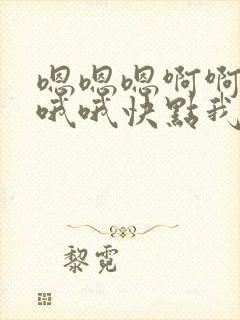 嗯嗯嗯啊啊
哦哦快點我
黎霓